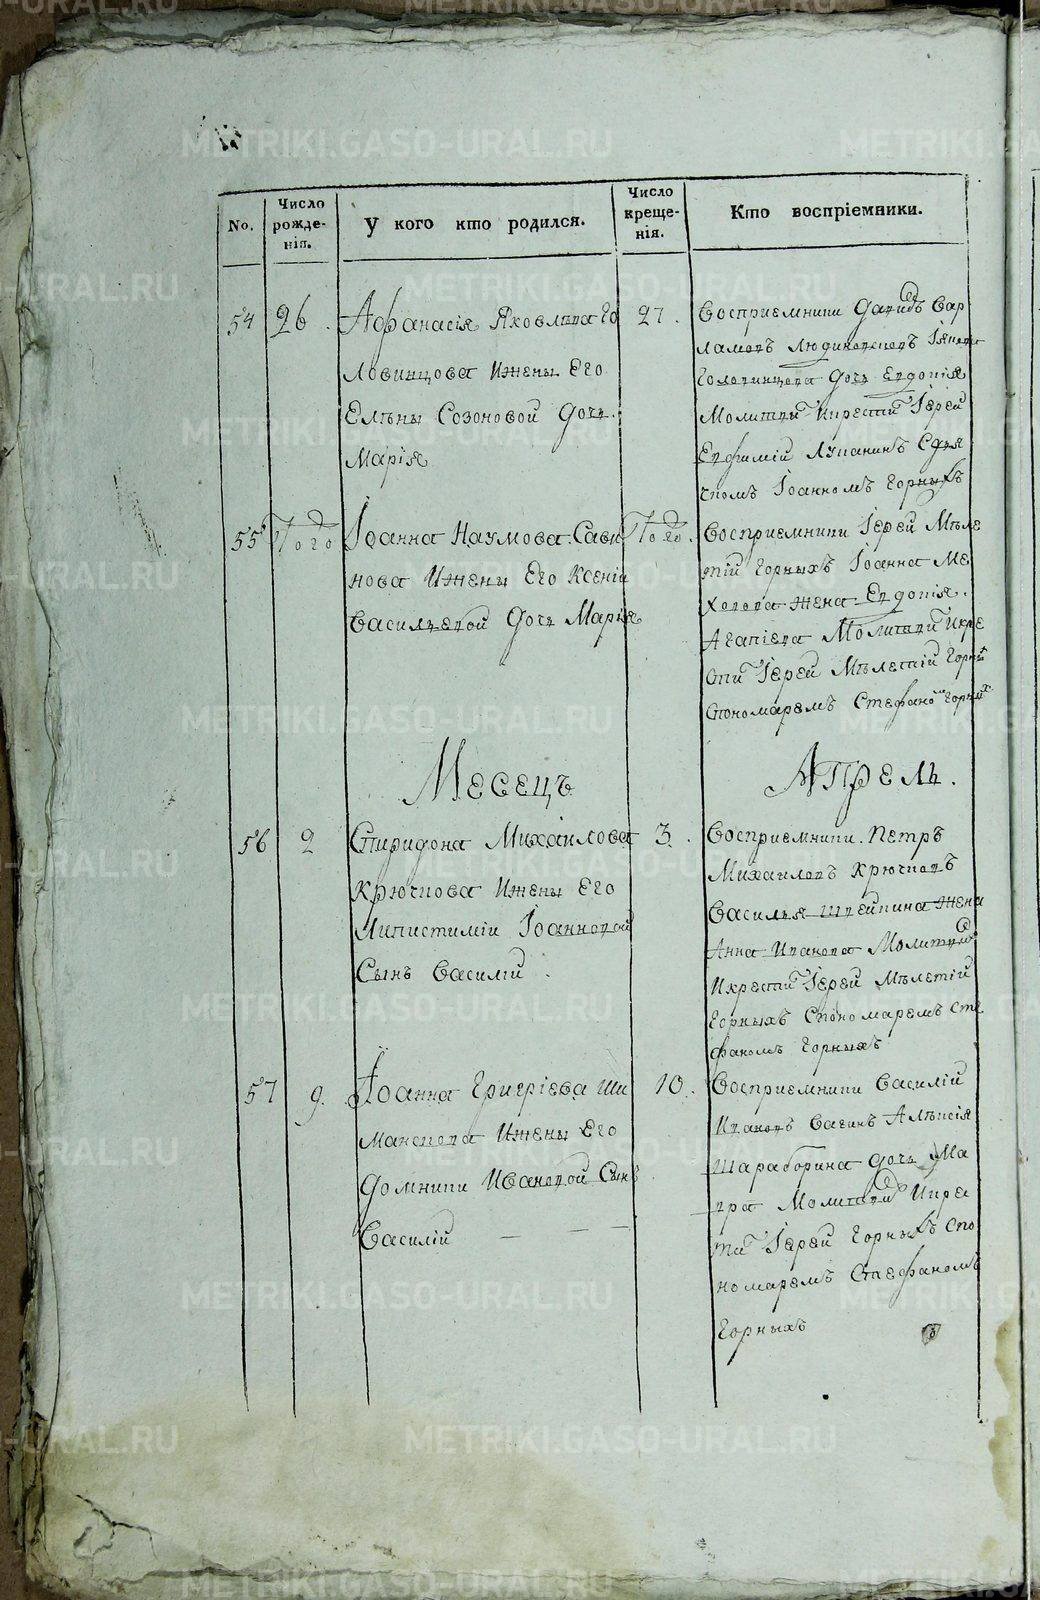 No.
Число рожде-нія.
У кого кто родился.
Число креще-нія.
Кто воспріемники.
54
26.
Афанасія Яковлева Го
ловинцова Ижены Его
Елѣны Созоновой Дочь.
Марія
27.
Восприемники Давидъ Вар
ламовъ
Головинцева Дочь Евдокія
Молитвы Икрести Іерей
Евфимій Лупанинъ Сдья
чкомъ Іоанномъ Горныхъ
55
Того
Іоанна Наумова Сави
нова Ижены Его Ксеніи
Васильевой Дочь Марія
Того.
Восприемники Іерей Мѣле
тій Горныхъ Іоанна Ме
хонова Жена Евдокія.
Агапіева Молитвы Икре
сти Іерей Мѣлетій Горных
Спономаремъ Стефано Горных
Месецъ
Апрель.
56
2
Спиридона Михайлова
Крючкова Ижены Его
Іоанновой
Сынъ Василій.
3.
Восприемники. Петръ
Михаиловъ Крючковъ
Василья Жена
Анна Иванова Молитвы
Икрести Іерей Мѣлетій
Горныхъ Спономаремъ Сте
фаномъ Горныхъ
57
9.
Іоанна Григріева Ши
Ижены Его
Домники Ивановой Сынъ
Василій
10.
Восприемники Василій
Ивановъ Вагинъ Алѣксія
Шараборина дочь Ма
вра Молитвы Икре
сти Іерей Горныхъ Спо
номаремъ Стефаномъ
Горныхъ
METRIKI.GASO-URAL.RU